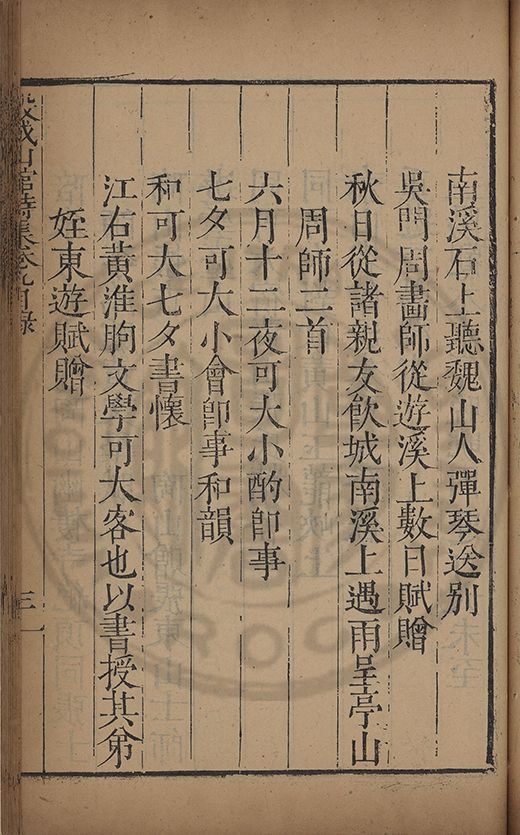 南溪石上聽魏山人彈琴送别
吳門周畫師從遊溪上數日賦贈
秋日從諸親友飲城南溪上遇雨呈亭山
周師二首
六月十二夜可大小酌卽事
七夕可大小會卽事和韻
和可大七夕書懷
江右黃淮朐文學可大客也以書授其弟
姪東遊賦贈
山館詩集卷九目錄
三